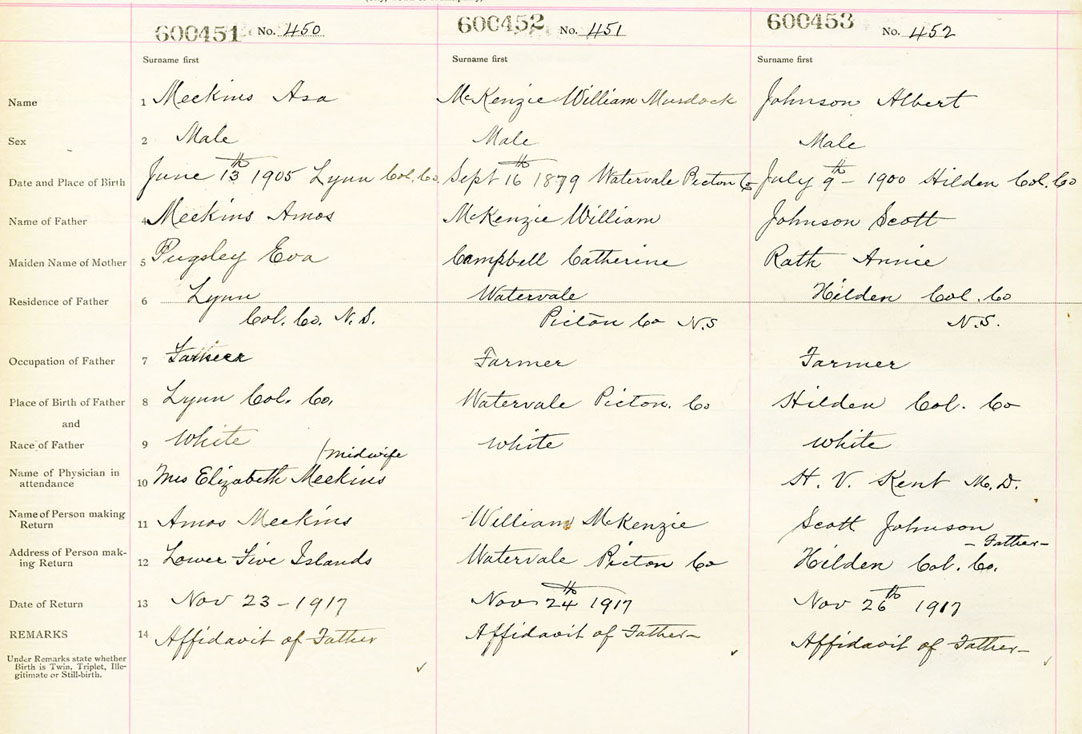 600451 No. 450 600452 No. 451 600453 No. 452
Surname first Surname first Surname first
Name 1 Meekins Asa McKenzie William Murdock Johnson Albert
Sex 2 Male Male Male
Date and Place of Birth June 13th 1905 Lynn Col. Co. Sept 16th 1879 Watervale Picton Co July 9th - 1900 Hilden Col. Co
Name of Father 4 Meekins Amos McKenzie William Johnson Scott
Maiden Name of Mother 5 Pugsley Eva Campbell Catherine Rath Annie
Residence of Father 6 Lynn Watervale Hilden Col. Co
Col. Co. N.S. Picton Co N.S N.S.
Occupation of Father 7 Farmer Farmer
Place of Birth of Father 8 Lynn Col. Co. Watervale Picton. Co Hilden Col. Co
and
Race of Father 9 White White White
/midwife
Name of Physician in
attendance 10 Mrs Elizabeth Meekins H. V. Kent M.D.
Name of Person making
Return 11 Amos Meekins William McKenzie Scott Johnson
- Father -
Address of Person mak-
ing Return 12 Lower Five Islands Watervale Picton Co Hilden Col. Co.
Date of Return 13 Nov 23 - 1917 Nov 24th 1917 Nov 26th 1917
REMARKS 14 Affidavit of Father Affidavit of Father - Affidavit of Father -
Under Remarks state whether
Birth is Twin, Triplet, Ille-
gitimate or Still-birth.